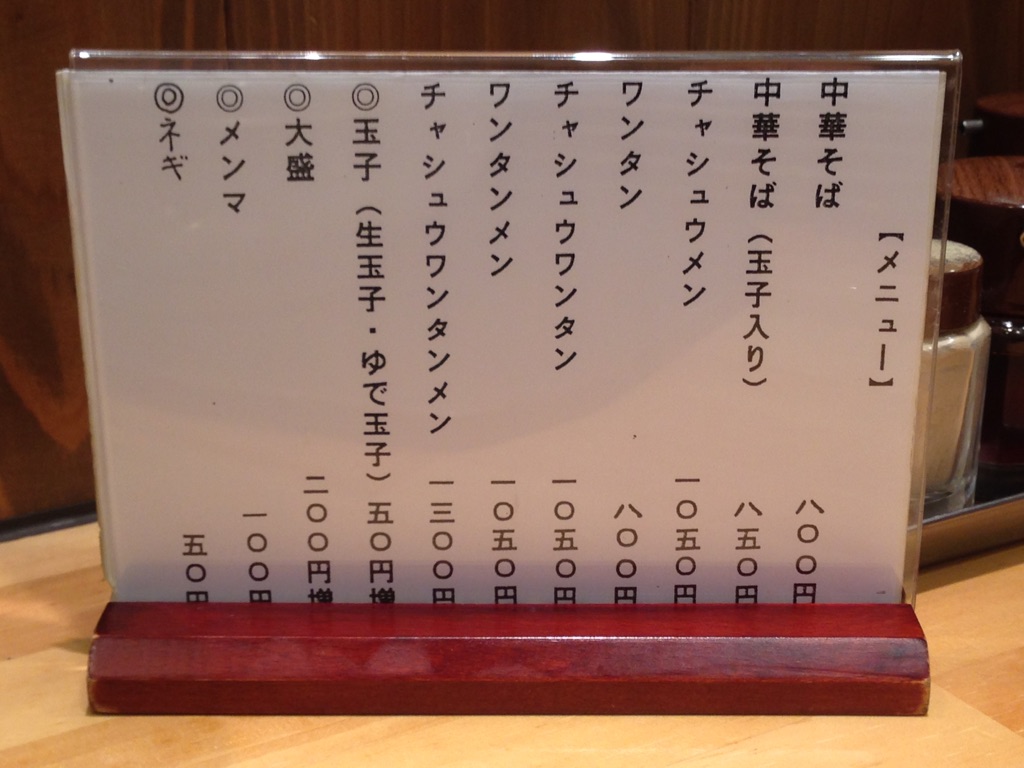 【メニュー】
中華そば 八〇〇円
中華そば（玉子入り） 八五〇円
チャシュウメン 一〇五〇円
ワンタン 八〇〇円
チャシュウワンタン 一〇五〇円
ワンタンメン 一〇五〇円
チャシュウワンタンメン 一三〇〇円
◎玉子（生玉子・ゆで玉子） 五〇円増
◎大盛 二〇〇円増
◎メンマ 一〇〇円
◎ネギ 五〇円